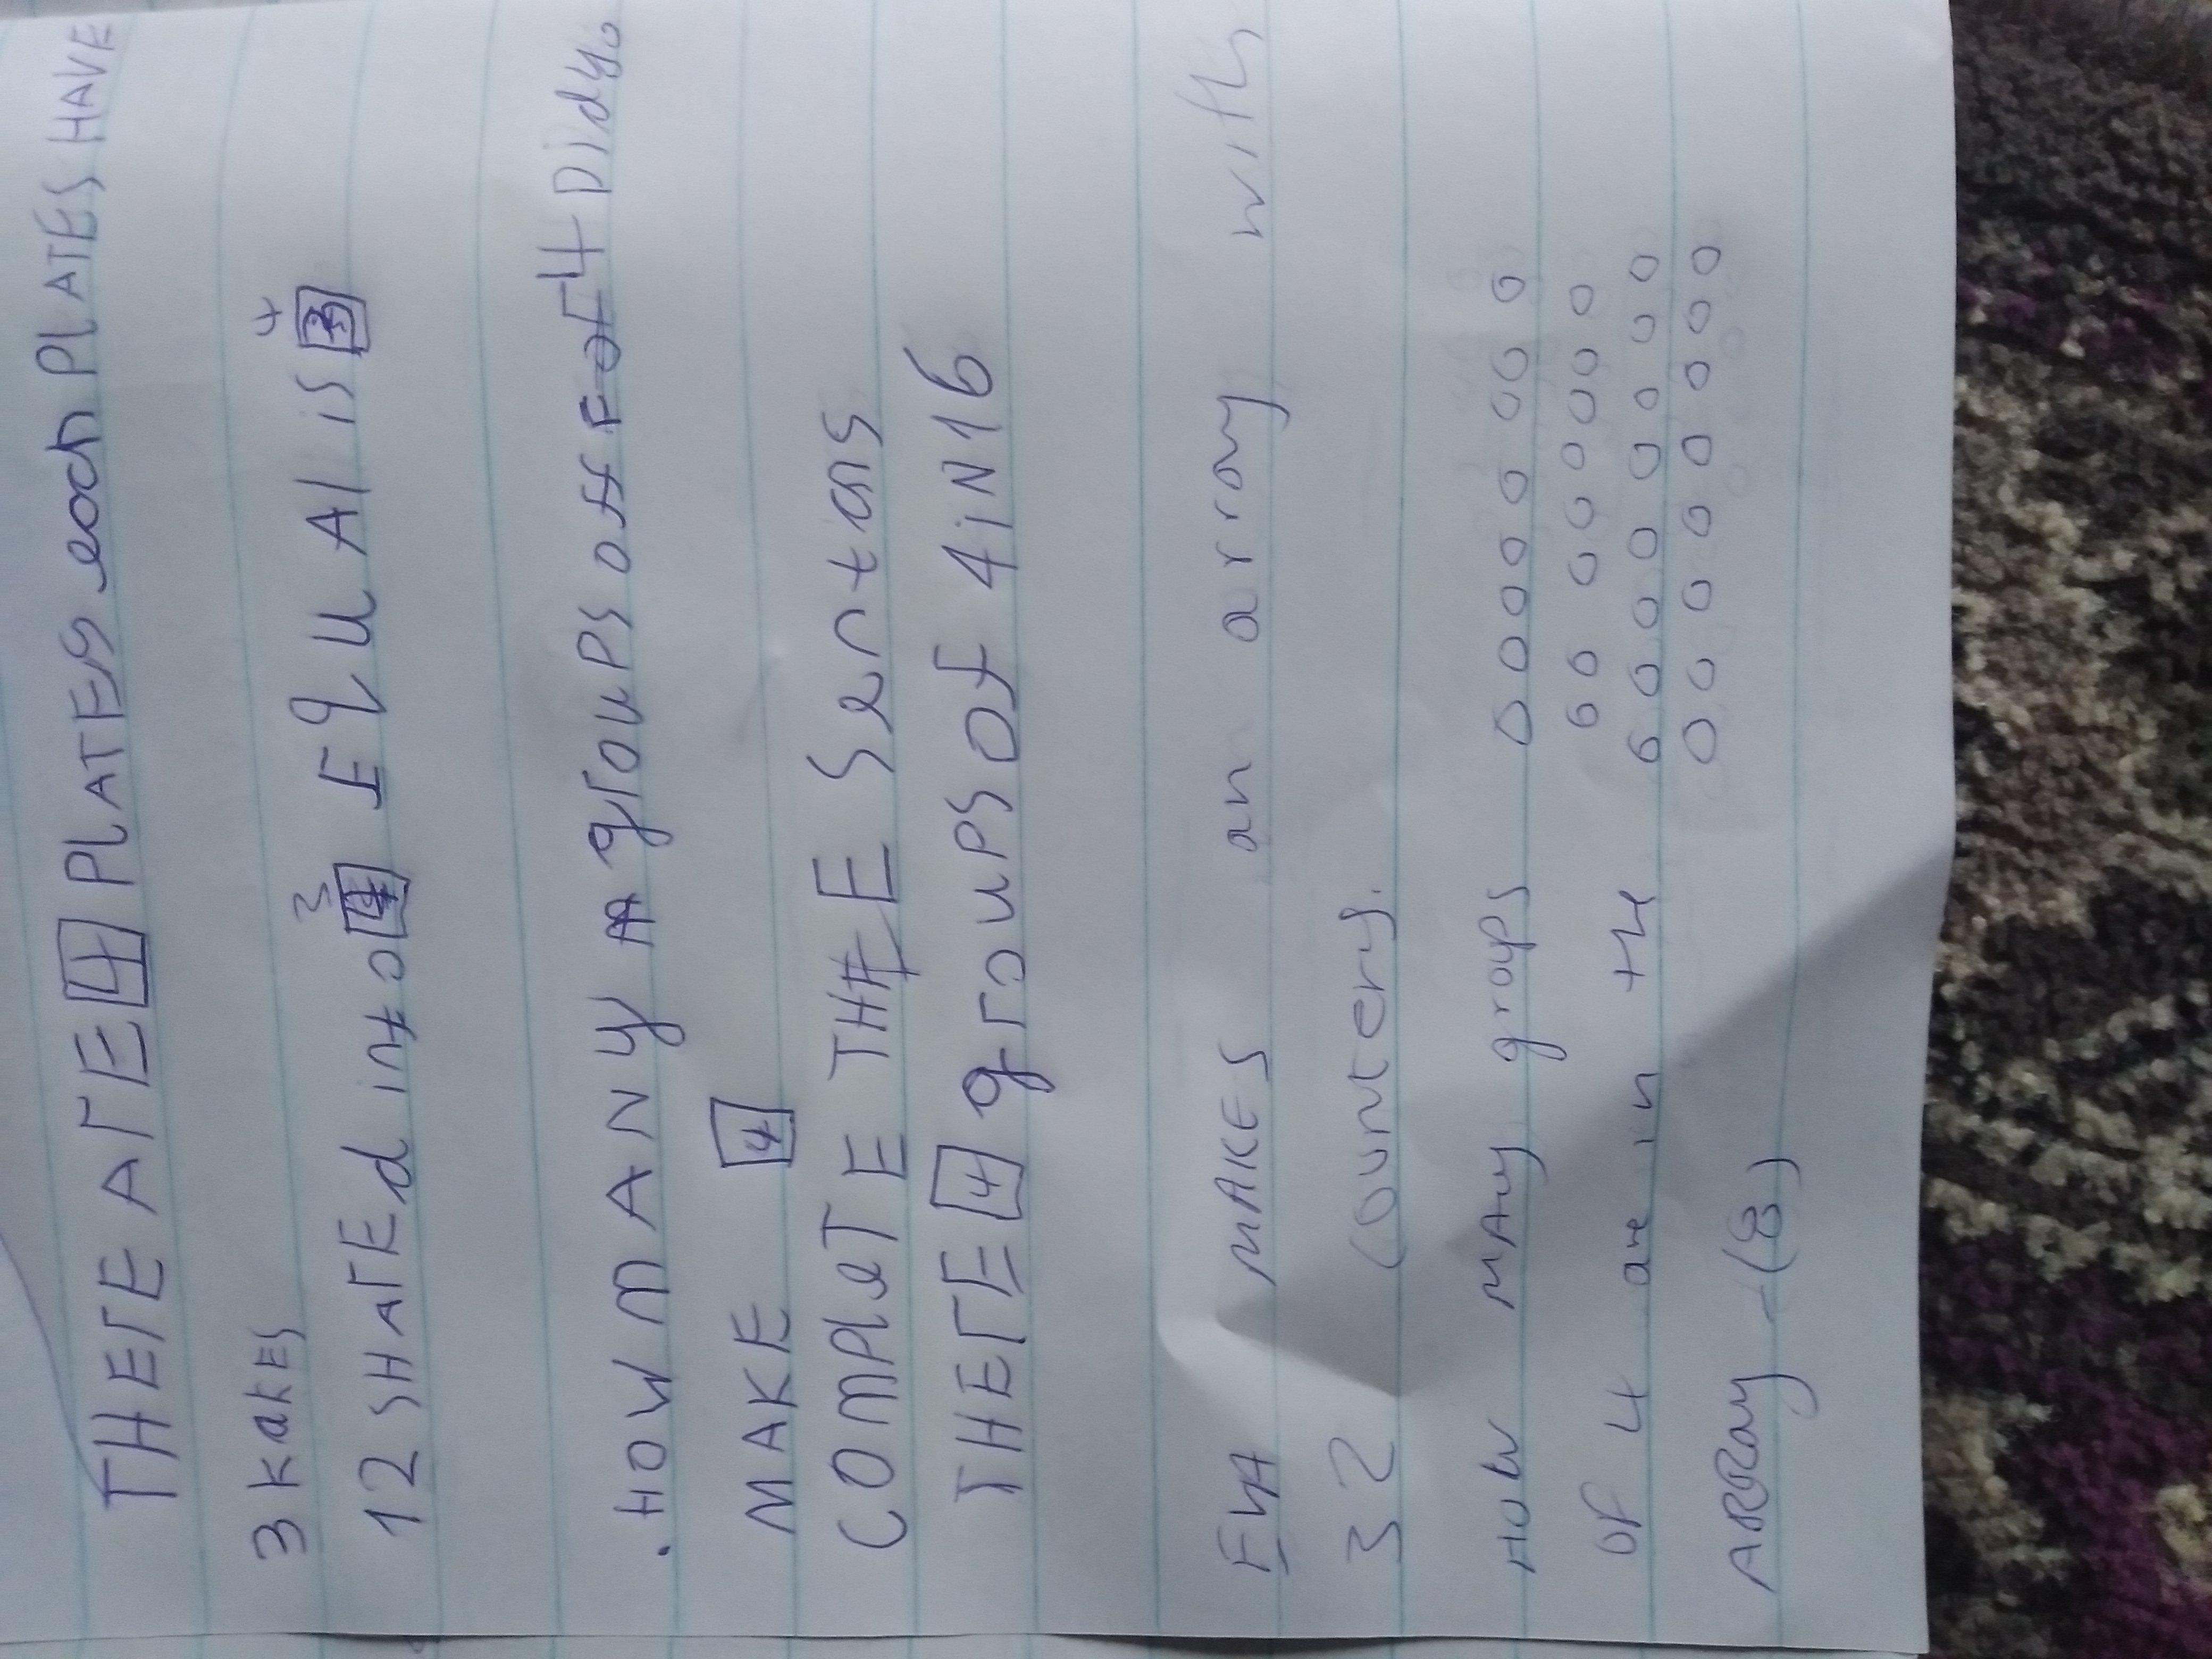 THErE ArE 4 PlATES each PlATES HAVE
3 KakES
4
3
12 SHArEd into 4 EqUAl iS 3
. HOW mANy groups off 4 Didy.
MAKE 4
COmPleTE THE Sentans
THErE 4 groups of 4 iN 16
EVA MAKES an array with
32 counters.
How many groups 0 0 0 0 0 0 0 0
0 0 0 0 0 0 0 0
of 4 are in the 0 0 0 0 0 0 0 0
0 0 0 0 0 0 0 0
ARRay - (8)